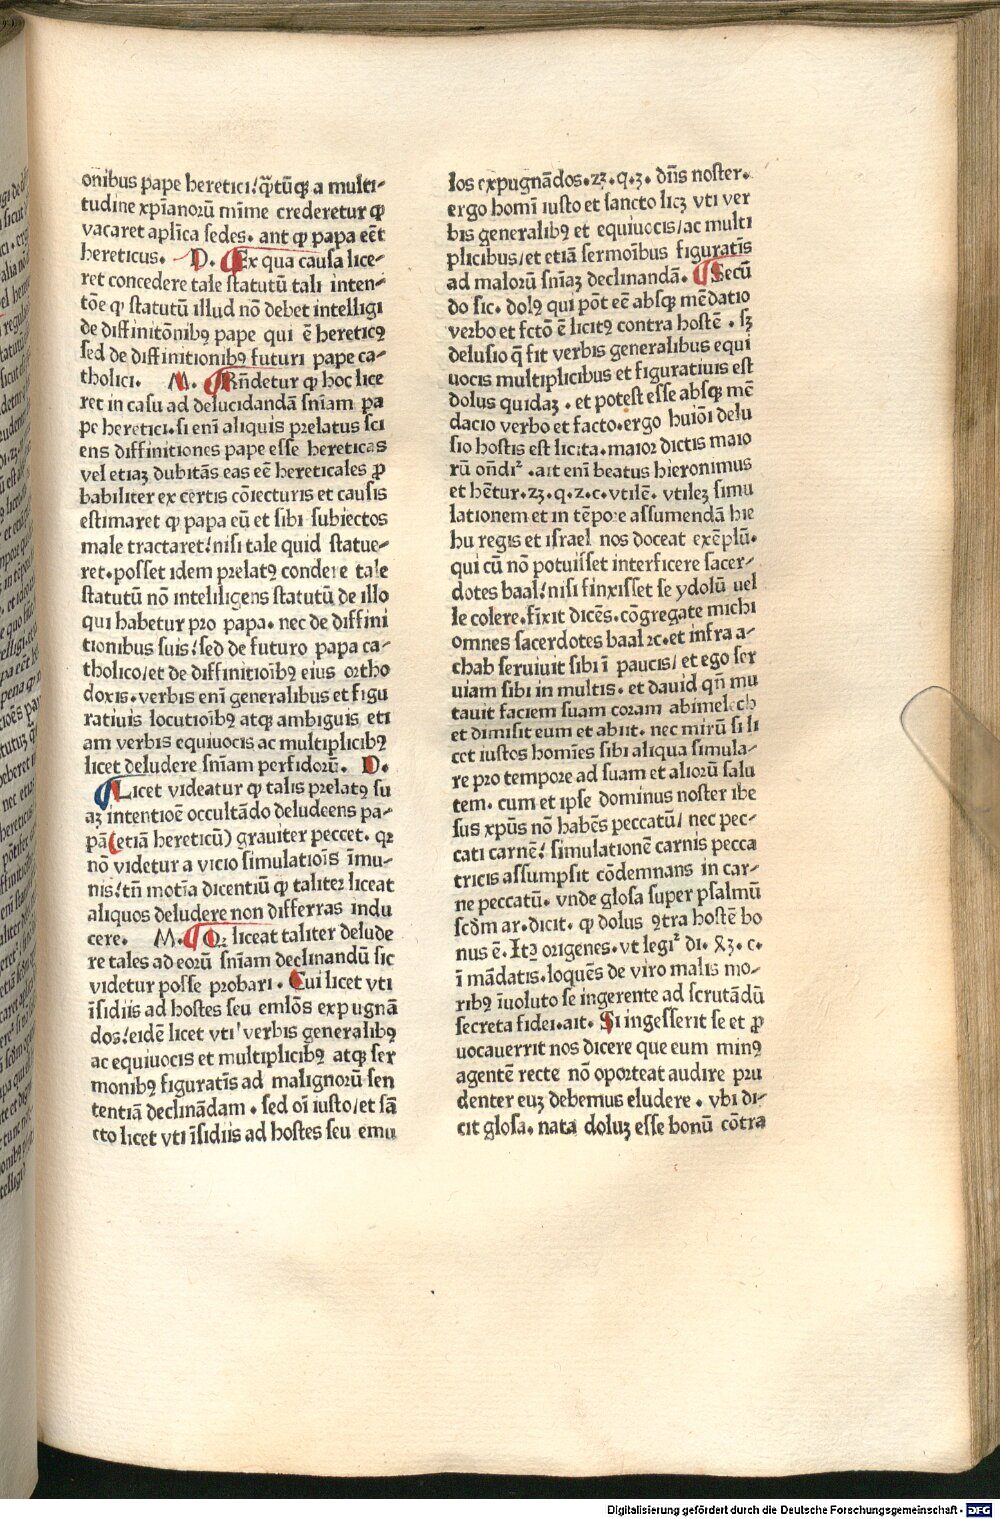 onibus pape heretici/ q̄tūcꝫ a multi-
tudine xp̄ianorū mīme crederetur ꝙ
vacaret apl̄ica sedes. ant ꝙ papa eēt
hereticus. D. Ex qua causa lice-
ret concedere tale statutū tali inten-
tōe ꝙ statutū illud nō debet intelligi
de diffinitōnibꝰ pape qui ē hereticꝰ
sed de diffinitionibꝰ futuri pape ca-
tholici. M. Rn̄detur ꝙ hoc lice
ret in casu ad delucidandā sn̄iam pa
pe heretici. si enī aliquis prelatus sci
ens diffinitiones pape esse hereticas
vel etiaꝫ dubitās eas eē hereticales ꝓ
babiliter ex certis cōiecturis et causis
estimaret ꝙ papa eū et sibi subiectos
male tractaret/ nisi tale quid statue-
ret. posset idem prelatꝰ condere tale
statutū nō inteliligens statutū de illo
qui habetur pro papa. nec de diffini
tionibus suis/ sed de futuro papa ca-
tholico/ et de diffinitioībꝰ eius ortho
doxis. verbis enī generalibus et figu
ratiuis locutioībꝰ atqꝫ ambiguis eti
am verbis equiuocis ac multiplicibꝰ
licet deludere sn̄iam perfidorū. D.
Licet videatur ꝙ talis prelatꝰ su
aꝫ intentioē occultādo deludeens pa-
pā (etiā hereticū) grauiter peccet. qꝛ
nō videtur a vicio simulatiōis īmu-
nis/ tn̄ motīa dicentiū ꝙ taliter liceat
aliquos deludere non differras indu
cere. M. Qꝛ liceat taliter delude
re tales ad eorū sn̄iam declinandū sic
videtur posse probari. Cui licet vti
īsidiis ad hostes seu emlōs expugnā
dos/ eidē licet vti verbis generalibꝰ
ac equiuocis et multiplicibꝰ atqꝫ ser
monibꝰ figuratīs ad malignorū sen
tentiā declināndam. sed oī iusto/ et sā
cto licet vti īsidiis ad hostes seu emu
los expugnādos. 23. q. 3. dn̄s noster.
ergo homī iusto et sancto licꝫ vti ver
bis generalibꝰ et equiuocis/ ac multi
plicibus/ et etiā sermoībus figuratīs
ad malorū sn̄iaꝫ declinandā. Secū
do sic. dolꝰ qui pōt eē absqꝫ mēdatio
verbo et fctō ē licitꝰ contra hostē. sꝫ
delusio q̄ fit verbis generalibus equi
uocis multiplicibus et figuratiuis est
dolus quidaꝫ. et potest esse absqꝫ mē
dacio verbo et facto. ergo huiōi delu
sio hostis est licita. maior dictis maio
rū on̄di². ait enī beatus hieronimus
et hētur. 23. q. 2. c. vtilē. vtileꝫ simu
lationem et in tēpore assumendā hie
hu regis et israel nos doceat exēplū.
qui cū nō potuisset interficere sacer-
dotes baal/ nisi finxisset se ydolū uel
le colere. fīxit dicēs. cōgregate michi
omnes sacerdotes baal ⁊c. et infra a-
chab seruiuit sibi ī paucis/ et ego ser
uiam sibi in multis. et dauid qn̄ mu
tauit faciem suam coram abimelech
et dimisit eum et abiit. nec mirū si li
cet iustos homīes sibi aliqua simula-
re pro tempore ad suam et aliorū salu
tem. cum et ipse dominus noster ihe
sus xpūs nō habēs peccatū/ nec pec-
cati carnē/ simulationē carnis pecca
tricis assumpsit cōdemnans in car-
ne peccatū. vnde glosa super psalmū
scd̄m ar. dicit. ꝙ dolus ꝯtra hostē bo
nus ē. Itꝫ origenes. vt legi² di. c.
ī mādatis. loquēs de viro malis mo-
ribꝰ īuoluto se ingerente ad scrutādū
secreta fidei. ait. Si ingesserit se et ꝓ
uocauerrit nos dicere que eum minꝰ
agentē recte nō oporteat audire pru
denter euꝫ debemus eludere. vbi di-
cit glosa. nata doluꝫ esse bonū cōtra
Digitalisierung gefördert durch die Deutsche Forschungsgemeinschaft - DFG